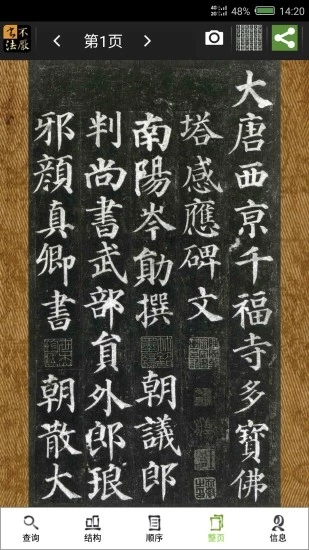 48% 14:20
不厭書法
第1页
大唐西京千福寺多寶佛
塔感應碑文
南陽岑勛撰 朝議郎
判尚書武部員外郎琅
邪顏真卿書 朝散大
查询 结构 顺序 整页 信息